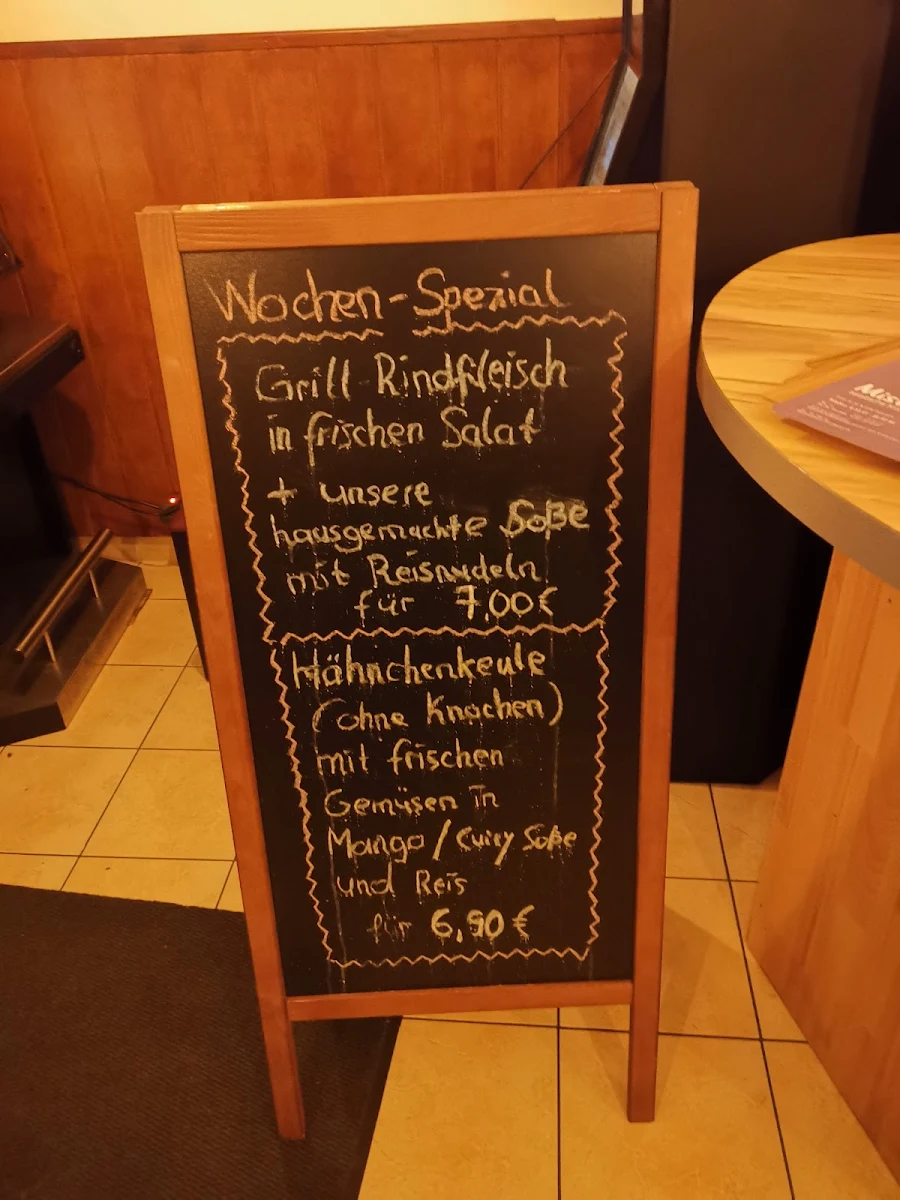 Wochen-Spezial
Grill Rindfleisch
in frischen Salat
+ unsere
hausgemachte Soße
mit Reisnudeln
für 7,00€
Hähnchenkeule
(ohne Knochen)
mit frischen
Gemüsen in
Mango/Curry Soße
und Reis
für 6,90€